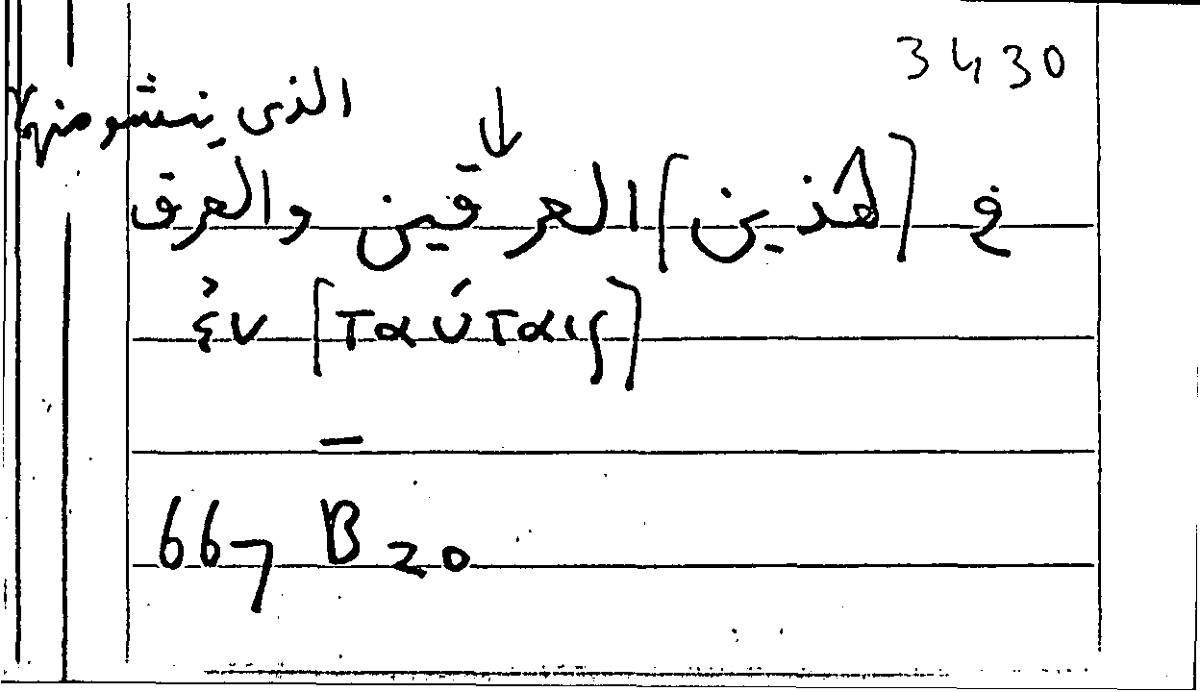 3430
الذى ينشو منها
فى [هذين] العرقين والعرق
ἐν [ταύταις]
–
667 B 20